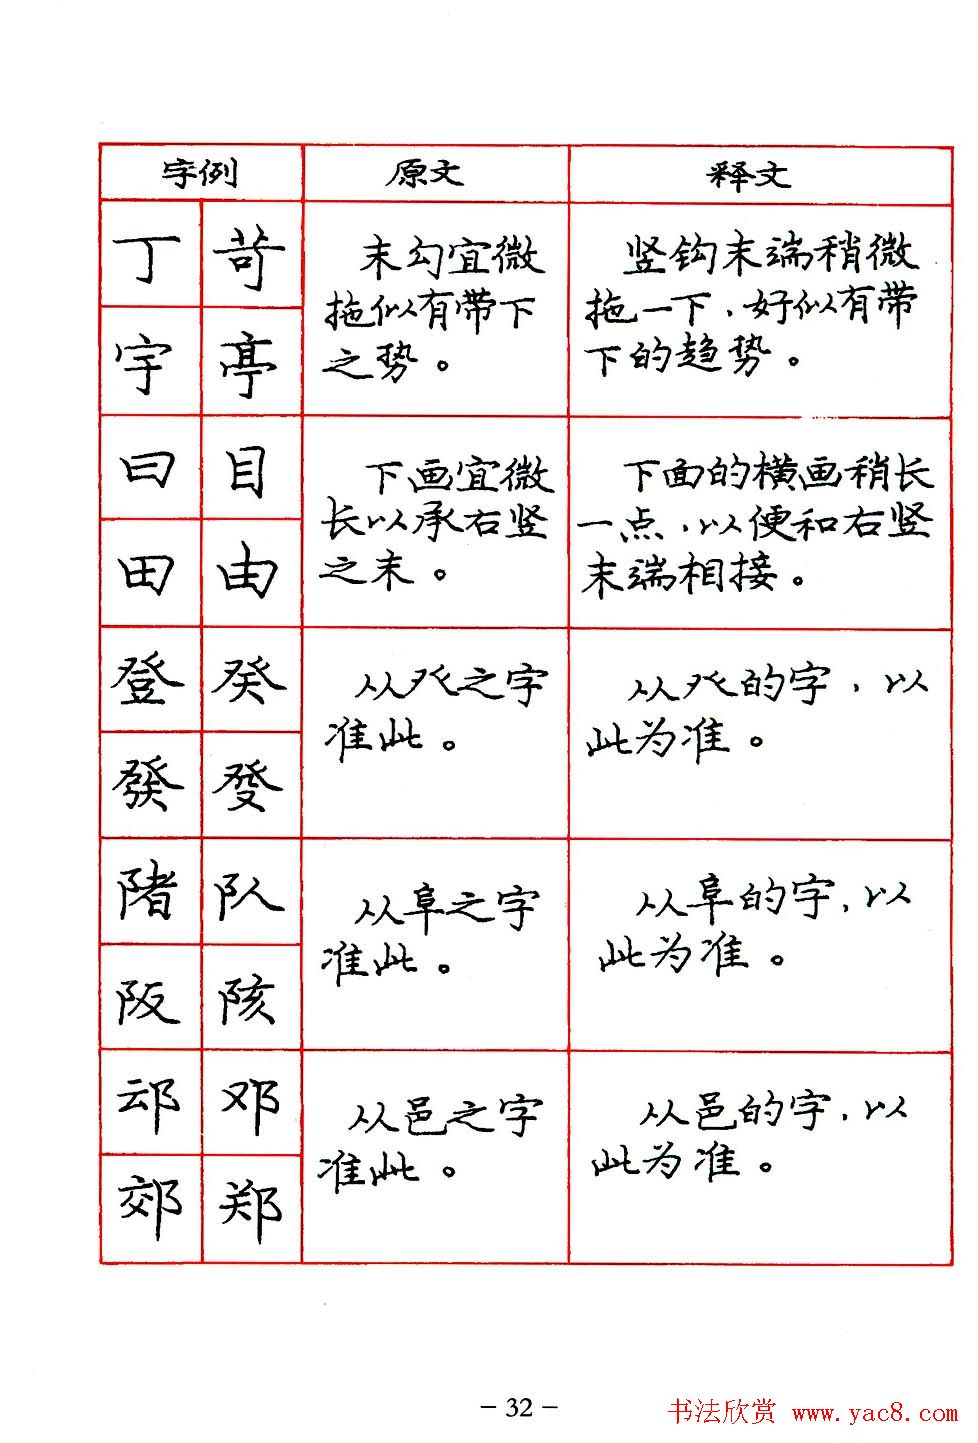 字例 原文 释文
丁 苛 末勾宜微 竖钩末端稍微
拖似有带下 拖一下，好似有带
宇 亭 之势。 下的趋势。
曰 目 下画宜微 下面的横画稍长
长以承右竖 一点，以便和右竖
田 由 之末。 末端相接。
登 癸 从癶之字 从癶的字，以
准此。 此为准。
發 發
陼 队 从阜之字 从阜的字，以
准此。 此为准。
阪 陔
邓 从邑之字 从邑的字，以
准此。 此为准。
郊 郑
- 32 -
书法欣赏 www.yac8.com